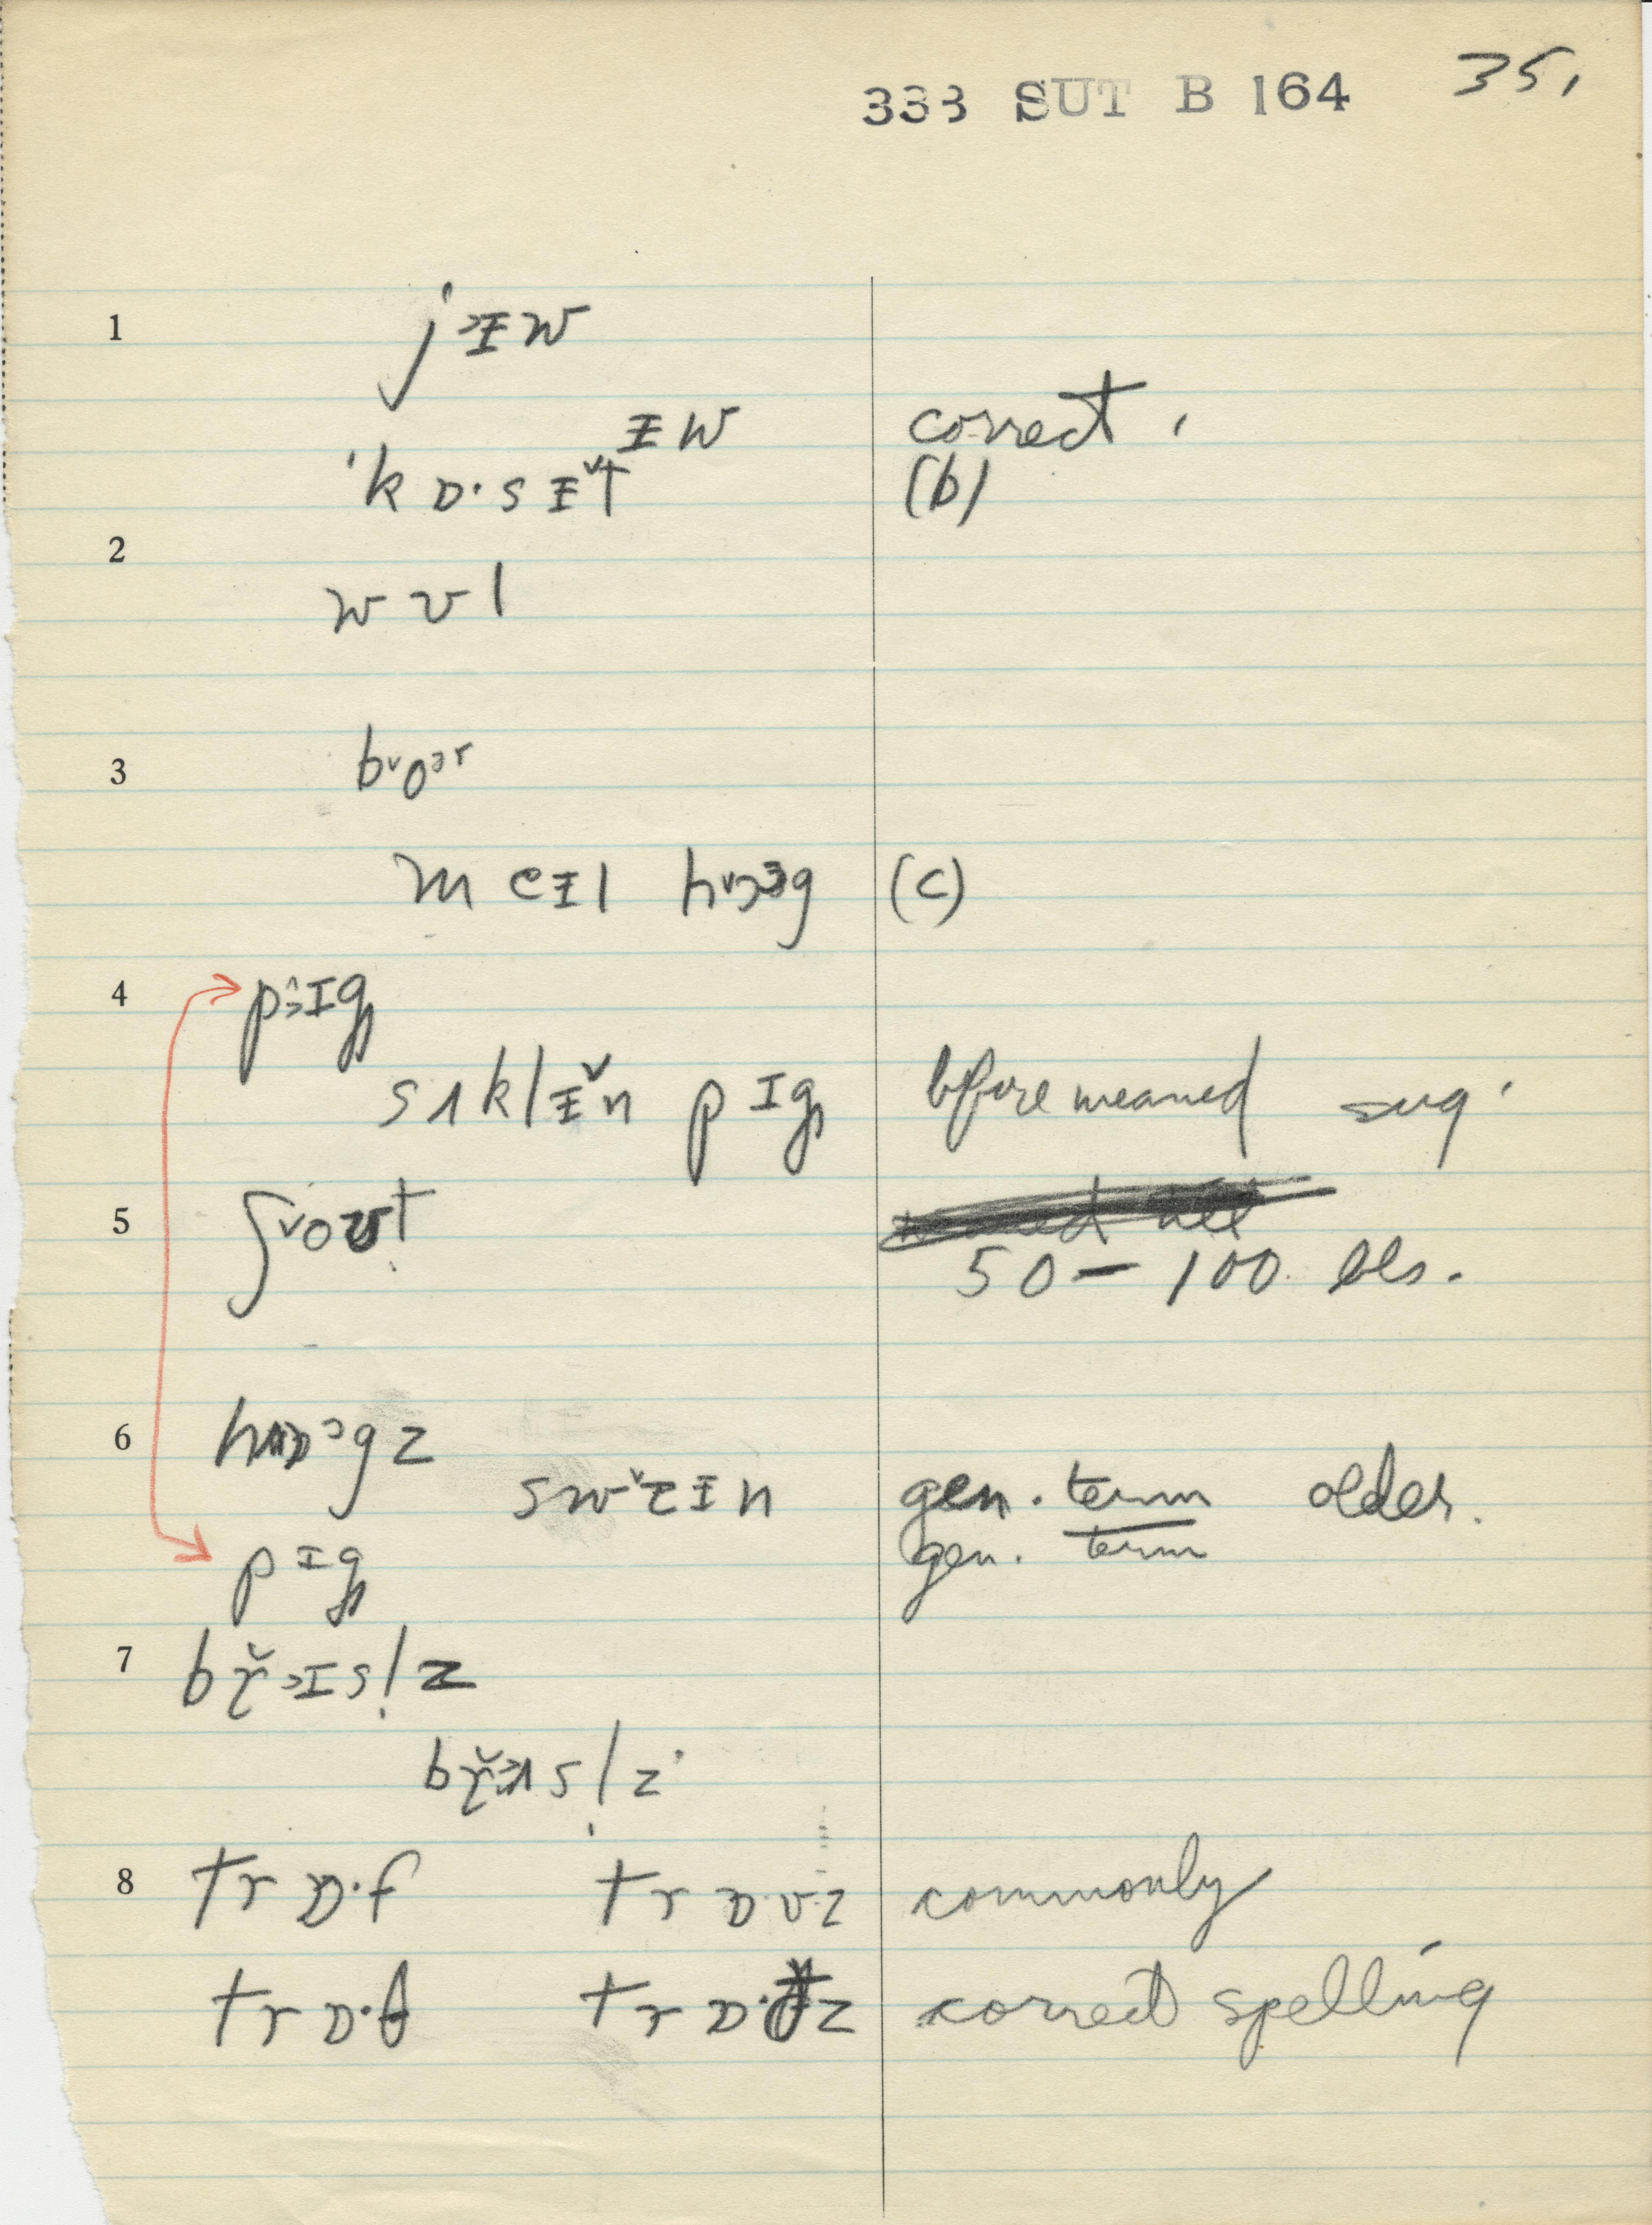 338 SUT B 164 35.
1 j>ᵻw
ᵻw correct.
'kɒ·sᵻ̌t (b)
2
wʊl
3 bᵛoᵊr
meᵻl hᵛɔɜg (c)
4 p>ɪg
sʌklᵻ̌n pɪg bfore weaned sug.
5 ʃᵛoʊt
50 – 100 lbs.
6 hɒᵓgz
swᵛɛᵻn gen. term older.
pɪg gen. term
7 br̆>ɪsl̩z
br̆>ʌsl̩z
8 trɒ·f trɒ·vz commonly
trɒ·θ trɒ·ðz correct spelling